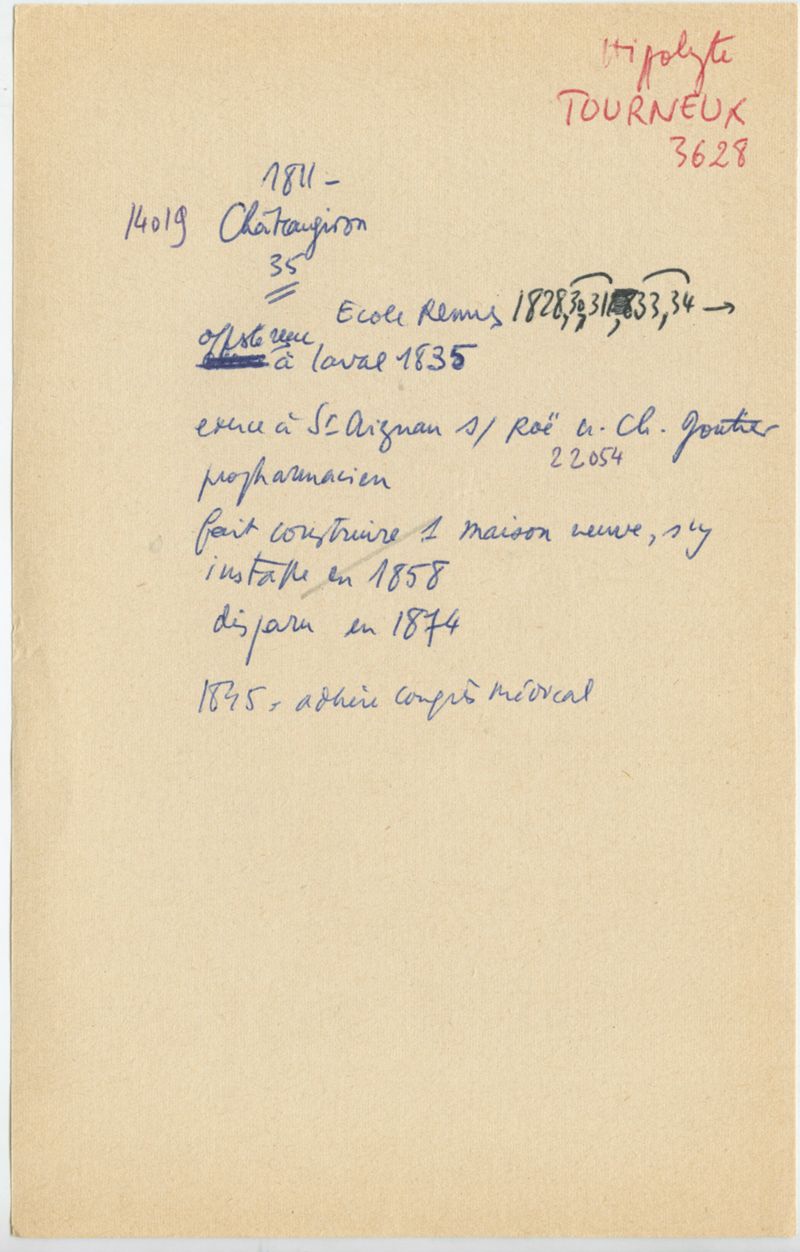 Hippolyte
TOURNEUX
3628
1811 -
14019 Châteaugiron
35
Ecole Rennes 1828, 30, 31, 833, 34 →
off. sté reçu
à Laval 1835
exerce à St Aignan s/ Roë Ch. Gontier
22054
propharmacien
fait construire 1 maison neuve, s'y
installe en 1858
disparu en 1874
1845 - adhère Congrès Médical